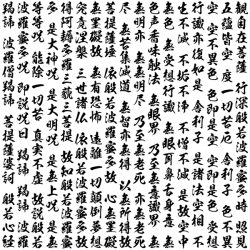 五蘊皆空度一切苦厄舍利子色
空不異色色即是空空即是色受想
行識亦復如是舍利子是諸法空相
生不滅不垢不淨不增不減是故空中
無色無受想行識無眼耳鼻舌身意
色聲香味觸法無眼界乃至無意識界
無無明亦無無明盡乃至無老死亦無老死
盡無苦集滅道無智亦無得以無所得故
依般若波羅蜜多故心無罣礙
罣礙故無有恐怖遠離一切顛倒夢想
究竟涅槃三世諸佛依般若波羅蜜多故
得阿耨多羅三藐三菩提故知般若波羅蜜
多是大神咒是大明咒是無上咒是無
等咒能除一切苦真實不虛故說般若
波羅蜜多咒即說咒曰羯諦羯諦
羯諦波羅僧羯諦菩提薩婆訶般若心經